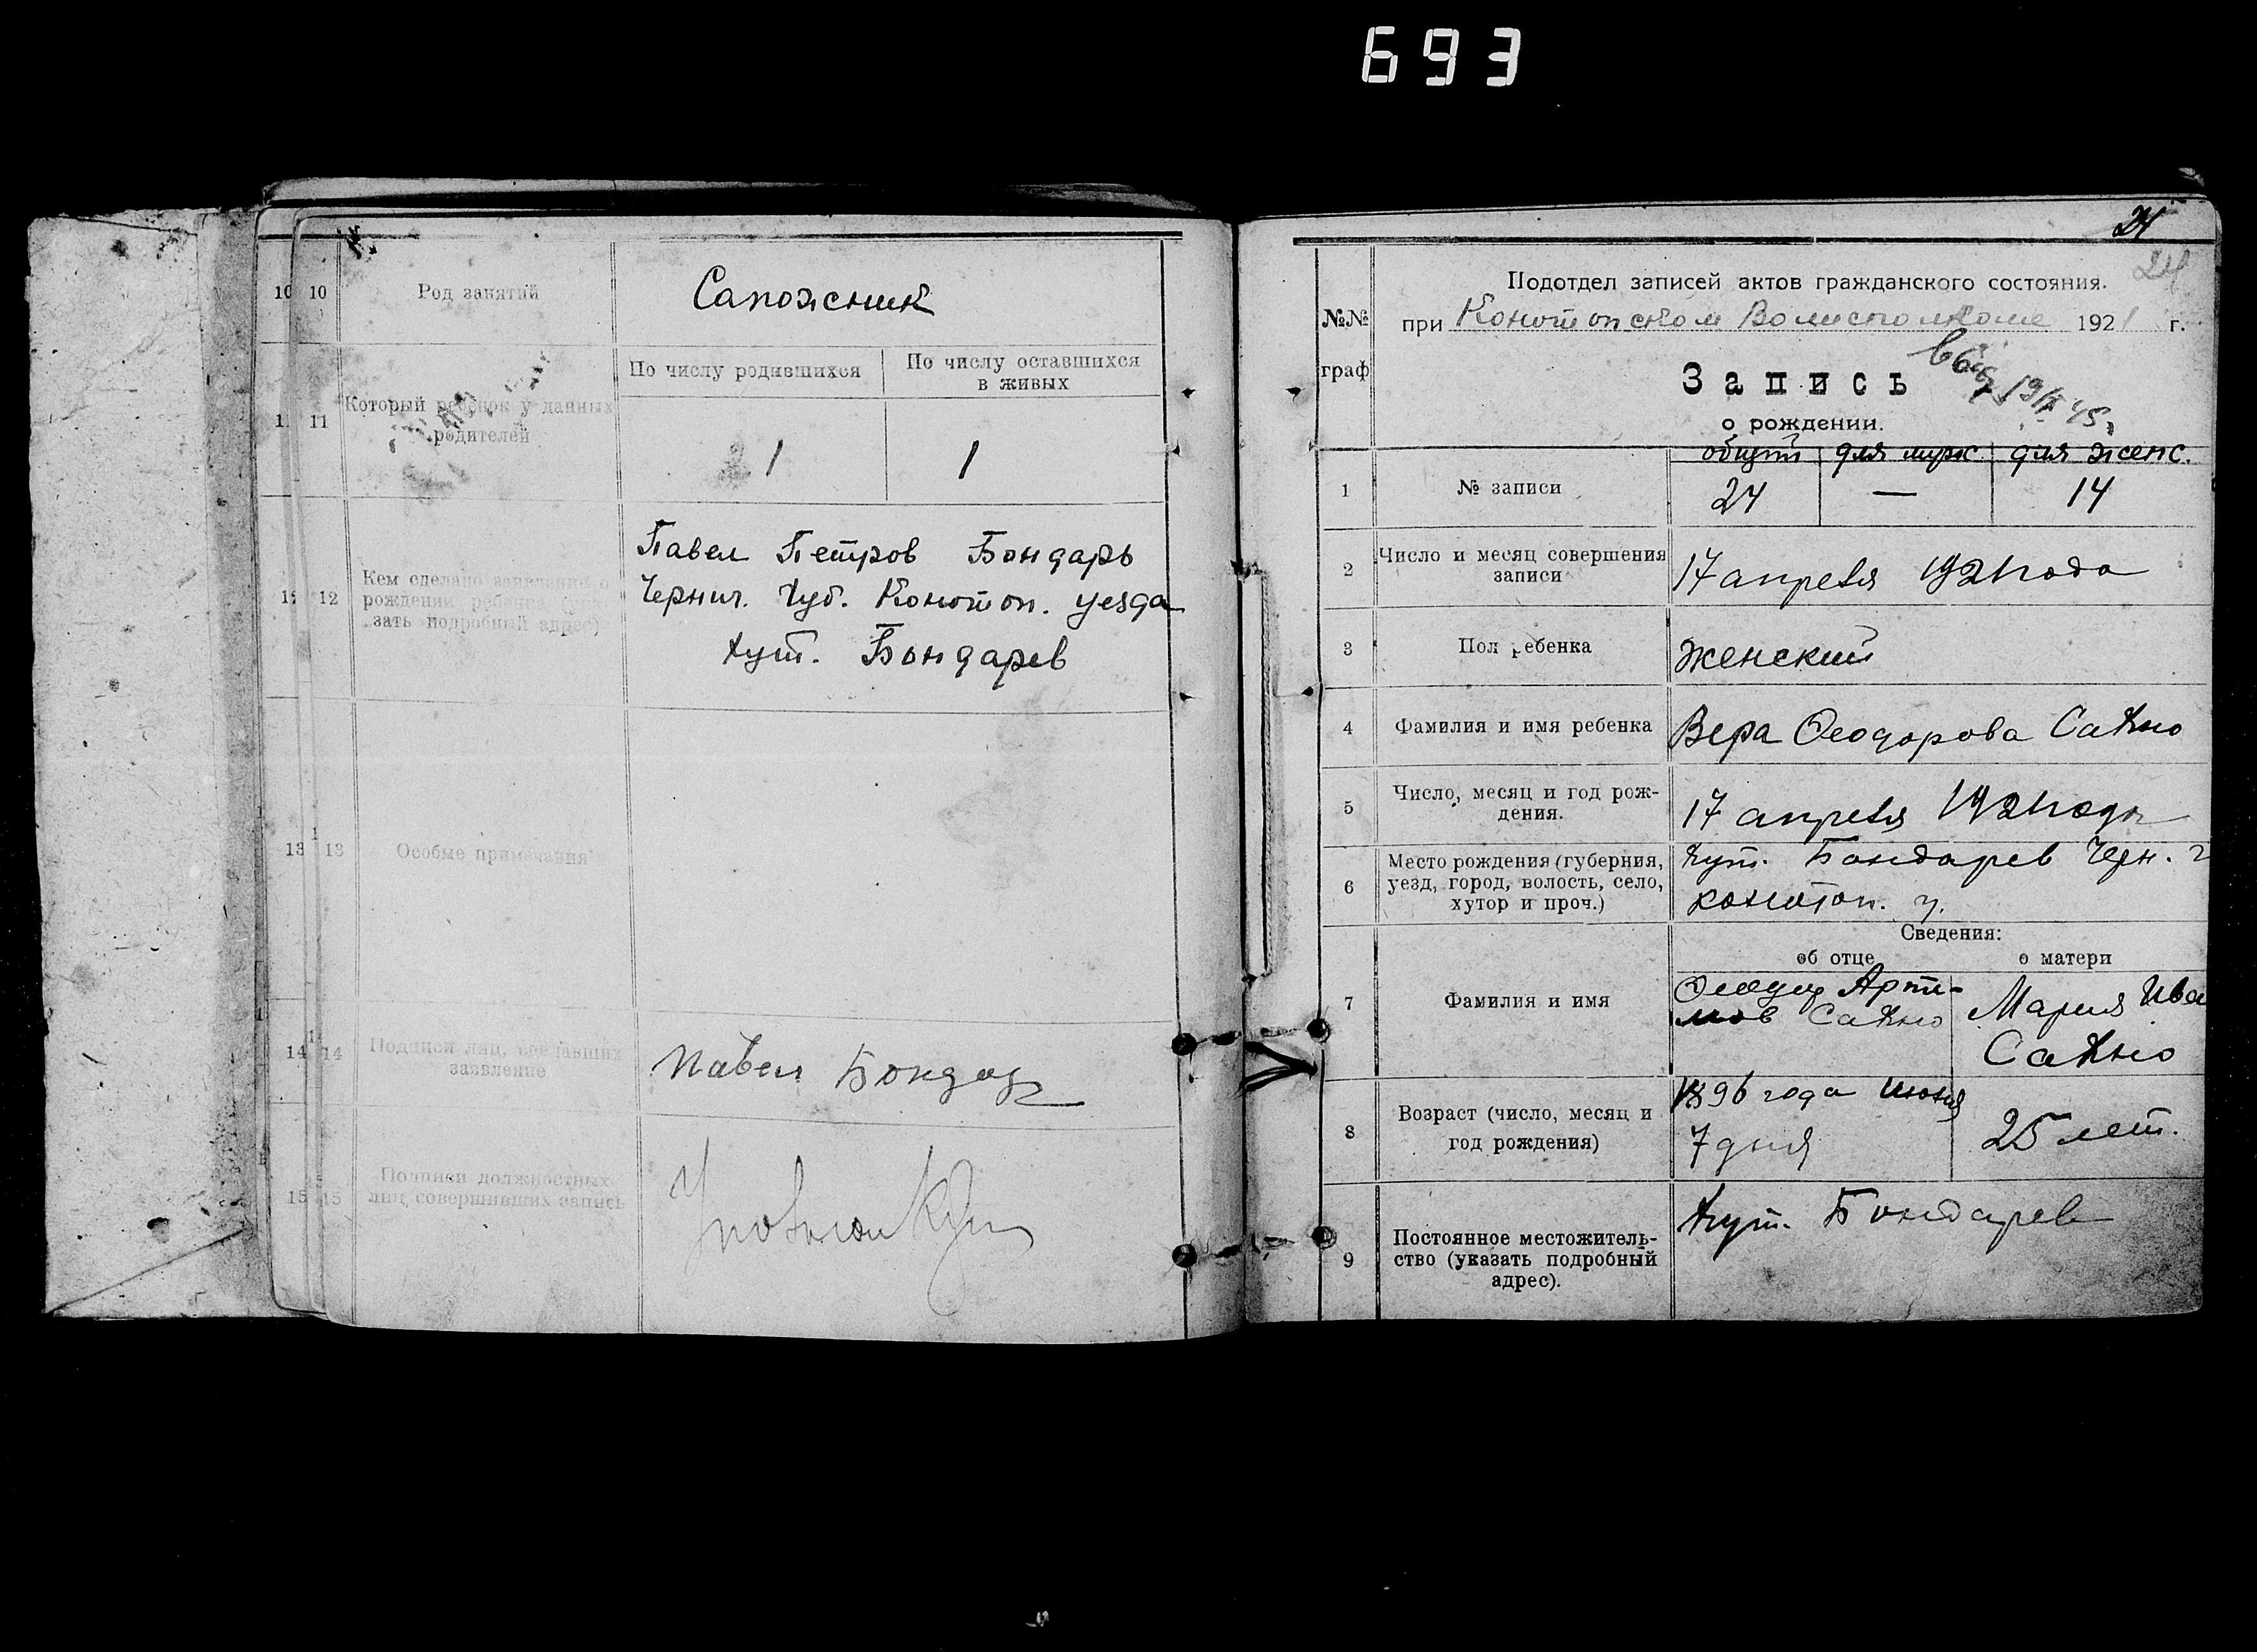 693
10 10 Род занятий Сапожник
11 11 Который ребенок у данных родителей
По числу родившихся По числу оставшихся в живых
1 1
12 12 Кем сделано заявление о рождении ребенка (указать подробный адрес)
Павел Петров Бондарь
Черниг. Губ. Конотоп. уезда
хут. Бондарев
13 13 Особые примечания
14 14 Подписи лиц, сделавших заявление
Павел Бондар
15 15 Подписи должностных лиц совершивших запись
24
24
№№ граф
Подотдел записей актов гражданского состояния.
при Конотопском Волисполкоме 1921 г.
Запись
о рождении.
19/X 45
общий для муж. для женс.
1 № записи 24 — 14
2 Число и месяц совершения записи 17 апреля 1921 года
3 Пол ребенка Женский
4 Фамилия и имя ребенка Вера Феодорова Сахно
5 Число, месяц и год рождения. 17 апреля 1921 года
6 Место рождения (губерния, уезд, город, волость, село, хутор и проч.)
хут. Бондарев Черн. г
конотоп. у.
Сведения:
об отце о матери
7 Фамилия и имя
Феодор Арти-
мов Сахно
Мария Ива
Сахно
8 Возраст (число, месяц и год рождения)
1896 года Июня
7 дня
25 лет.
9 Постоянное местожительство (указать подробный адрес).
Хут. Бондарев